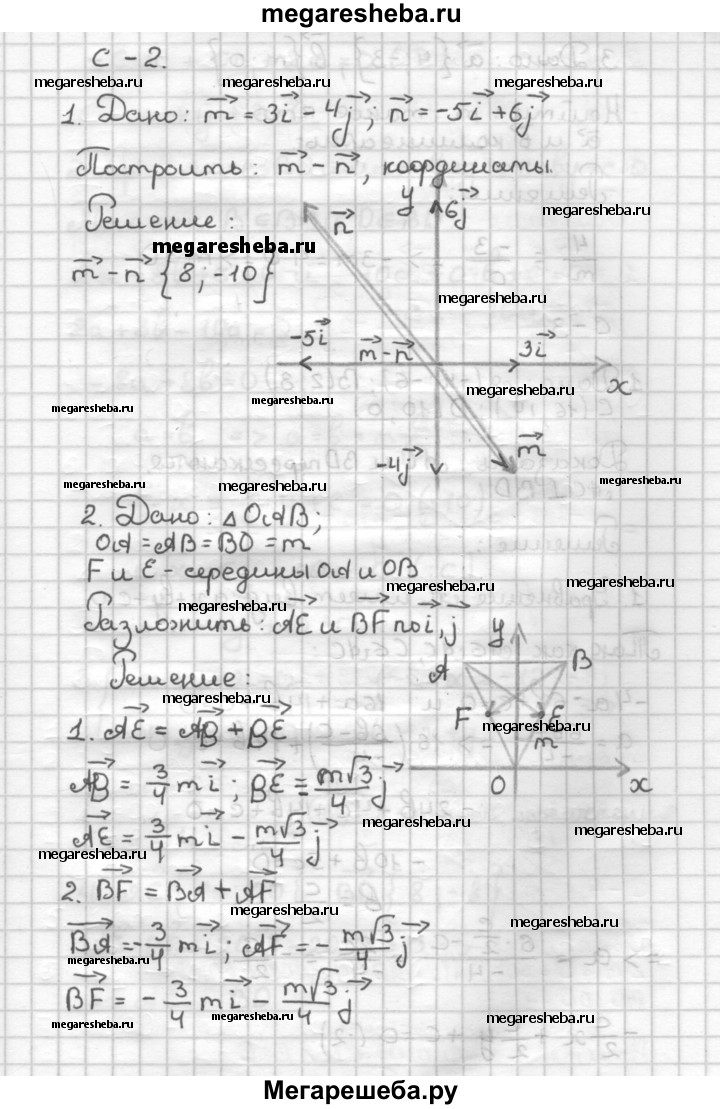 megaresheba.ru
С - 2.
megaresheba.ru megaresheba.ru megaresheba.ru
1. Дано: m = 3i - 4j; n = -5i + 6j
Построить: m - n, координаты.
Решение:
y 6j
n
megaresheba.ru
megaresheba.ru
m - n {8; -10}
megaresheba.ru
-5i m - n 3i
x
megaresheba.ru
megaresheba.ru megaresheba.ru
m
-4j
megaresheba.ru megaresheba.ru megaresheba.ru
2. Дано: △OAB;
OA = AB = BO = m
F и E - середины OA и OB
megaresheba.ru megaresheba.ru
megaresheba.ru
Разложить: AE и BF по i, j
y
A B
Решение:
megaresheba.ru
F E
megaresheba.ru
m
1. AE = AB + BE
O x
AB = 3/4 mi; BE = m√3/4 j
megaresheba.ru megaresheba.ru
AE = 3/4 mi - m√3/4 j
megaresheba.ru
2. BF = BA + AF
megaresheba.ru megaresheba.ru
BA = -3/4 mi; AF = - m√3/4 j
megaresheba.ru
BF = - 3/4 mi - m√3/4 j
megaresheba.ru megaresheba.ru megaresheba.ru
Мегарешеба.ру